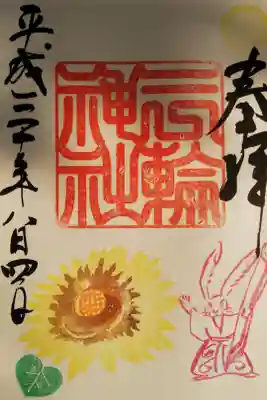 奉拝
三輪
神社
平成三十年八月四日